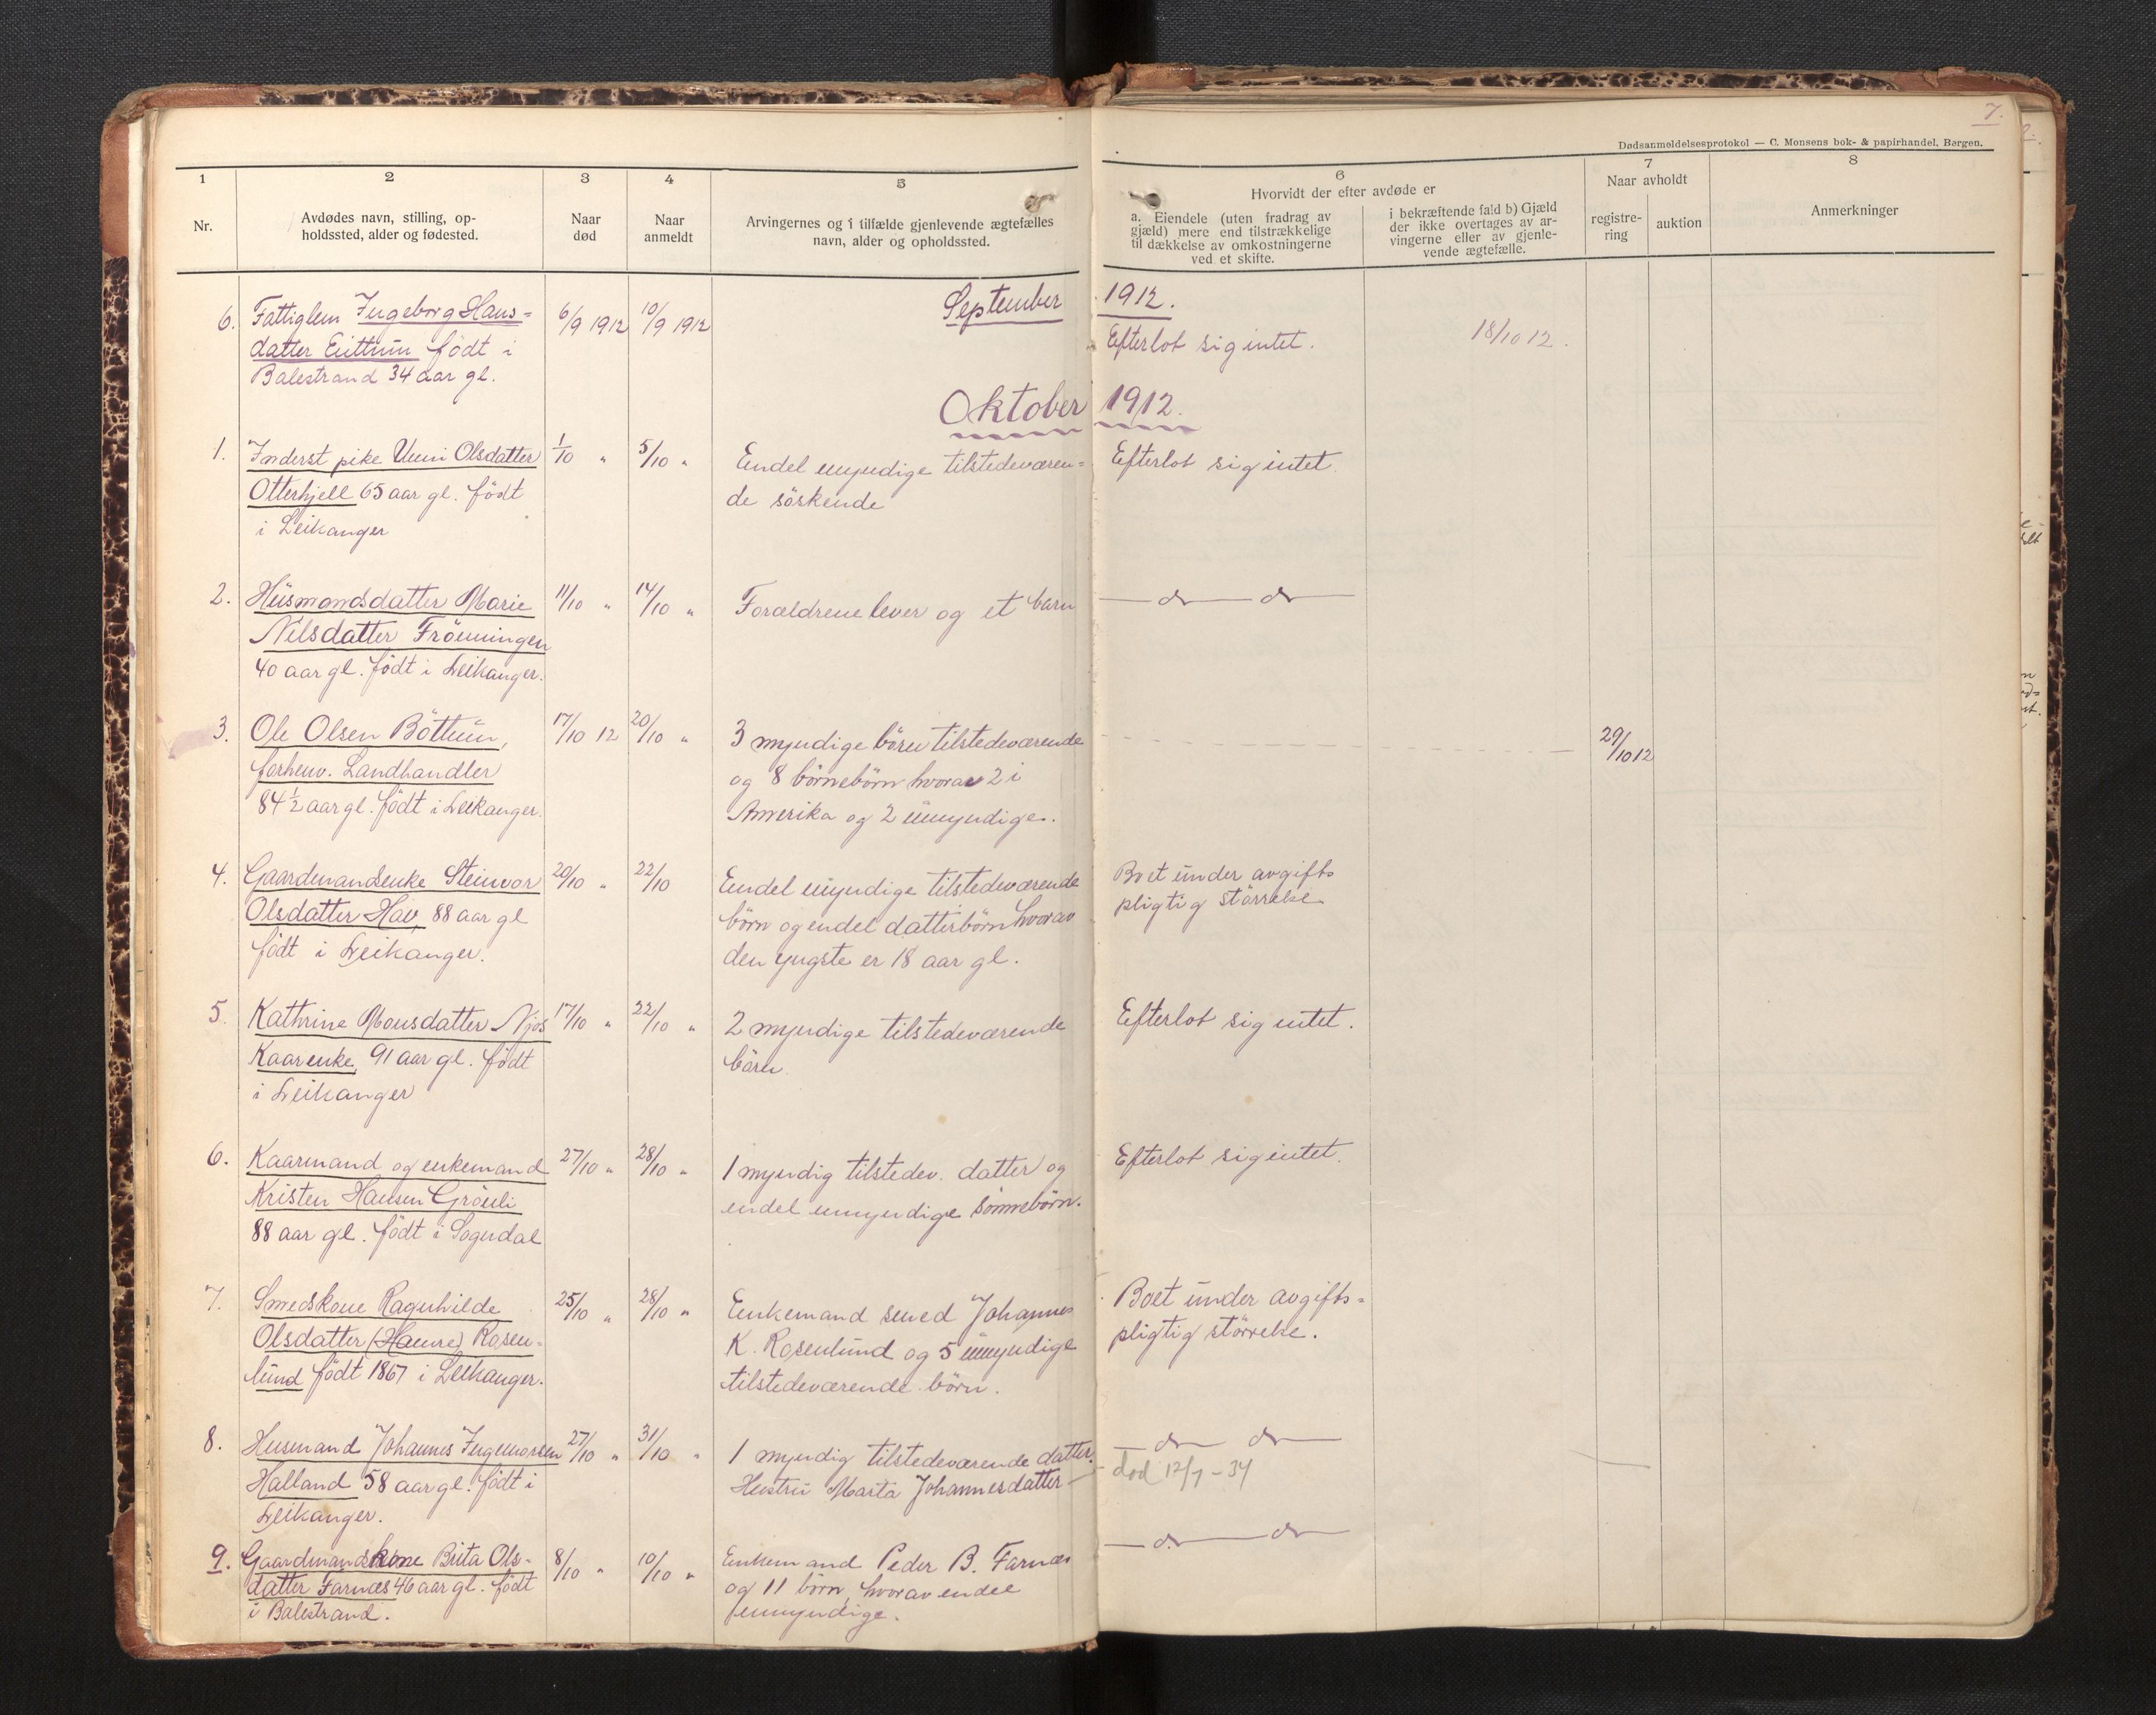 7.
Dødsanmeldelsesprotokol — C. Monsens bok- & papirhandel. Bergen.
1
2
3
4
5
6
7
8
Nr.
Avdødes navn, stilling, op-
holdssted, alder og fødested.
Naar
død
Naar
anmeldt
Arvingernes og i tilfælde gjenlevende ægtefælles
navn, alder og opholdssted.
Hvorvidt der efter avdøde er
a. Eiendele (uten fradrag av
gjæld) mere end tilstrækkelige
til dækkelse av omkostningerne
ved et skifte.
i bekræftende fald b) Gjæld
der ikke overtages av ar-
vingerne eller av gjenle-
vende ægtefælle.
Naar avholdt
registre-
ring
auktion
Anmerkninger
September 1912.
6. Fattiglem Ingeborg Hans-
datter født i
Balestrand 34 aar gl.
6/9 1912
10/9 1912
Efterlot sig intet.
18/10 12.
Oktober 1912.
1. Inderst pike Unni Olsdatter
Otterhjell 65 aar gl. født
i Leikanger
1/10 "
5/10 "
Endel myndige tilstedeværen-
de söskende
Efterlot sig intet.
2. Husmandsdatter Marie
Nilsdatter Frönningen
40 aar gl. født i Leikanger.
11/10 "
14/10 "
Forældrene lever og et barn
— do — do —
3. Ole Olsen Böttun,
forhenv. Landhandler
84 1/2 aar gl. født i Leikanger.
17/10 12
20/10 "
3 myndige börn tilstedeværende
og 8 börnebörn hvorav 2 i
Amerika og 2 umyndige.
29/10 12
4. Gaardmandsenke Steinvor
Olsdatter Hav, 88 aar gl
født i Leikanger.
20/10 "
22/10
Endel myndige tilstedeværende
börn og endel datterbörn hvorav
den yngste er 18 aar gl.
Boet under avgifts
pligtig störrelse
5. Kathrine Monsdatter Njøs
Kaarenke, 91 aar gl. født
i Leikanger
17/10 "
22/10 "
2 myndige tilstedeværende
börn
Efterlot sig intet.
6. Kaarmand og enkemand
Kristen Hansen Gröuli
88 aar gl. født i Sogndal
27/10 "
28/10 "
1 myndig tilstedev. datter og
endel umyndige sönnebörn.
Efterlot sig intet.
7. Smedskone Ragnhilde
Olsdatter (Hamre) Rosen-
lund født 1867 i Leikanger.
25/10 "
28/10 "
Enkemand smed Johannes
K. Rosenlund og 5 umyndige
tilstedeværende börn.
Boet under avgifts-
pligtig störrelse.
8. Husmand Johannes Ingemorsen
Halland 58 aar gl. født i
Leikanger.
27/10 "
31/10 "
1 myndig tilstedeværende datter.
Hustru Marta Johannesdatter —
— do — do —
død 12/7 - 34
9. Gaardmandskone Brita Ols-
datter Farnæs 46 aar gl. født
i Balestrand.
8/10 "
10/10 "
Enkemand Peder B. Farnæs
og 11 börn, hvorav endel
umyndige.
— do — do —